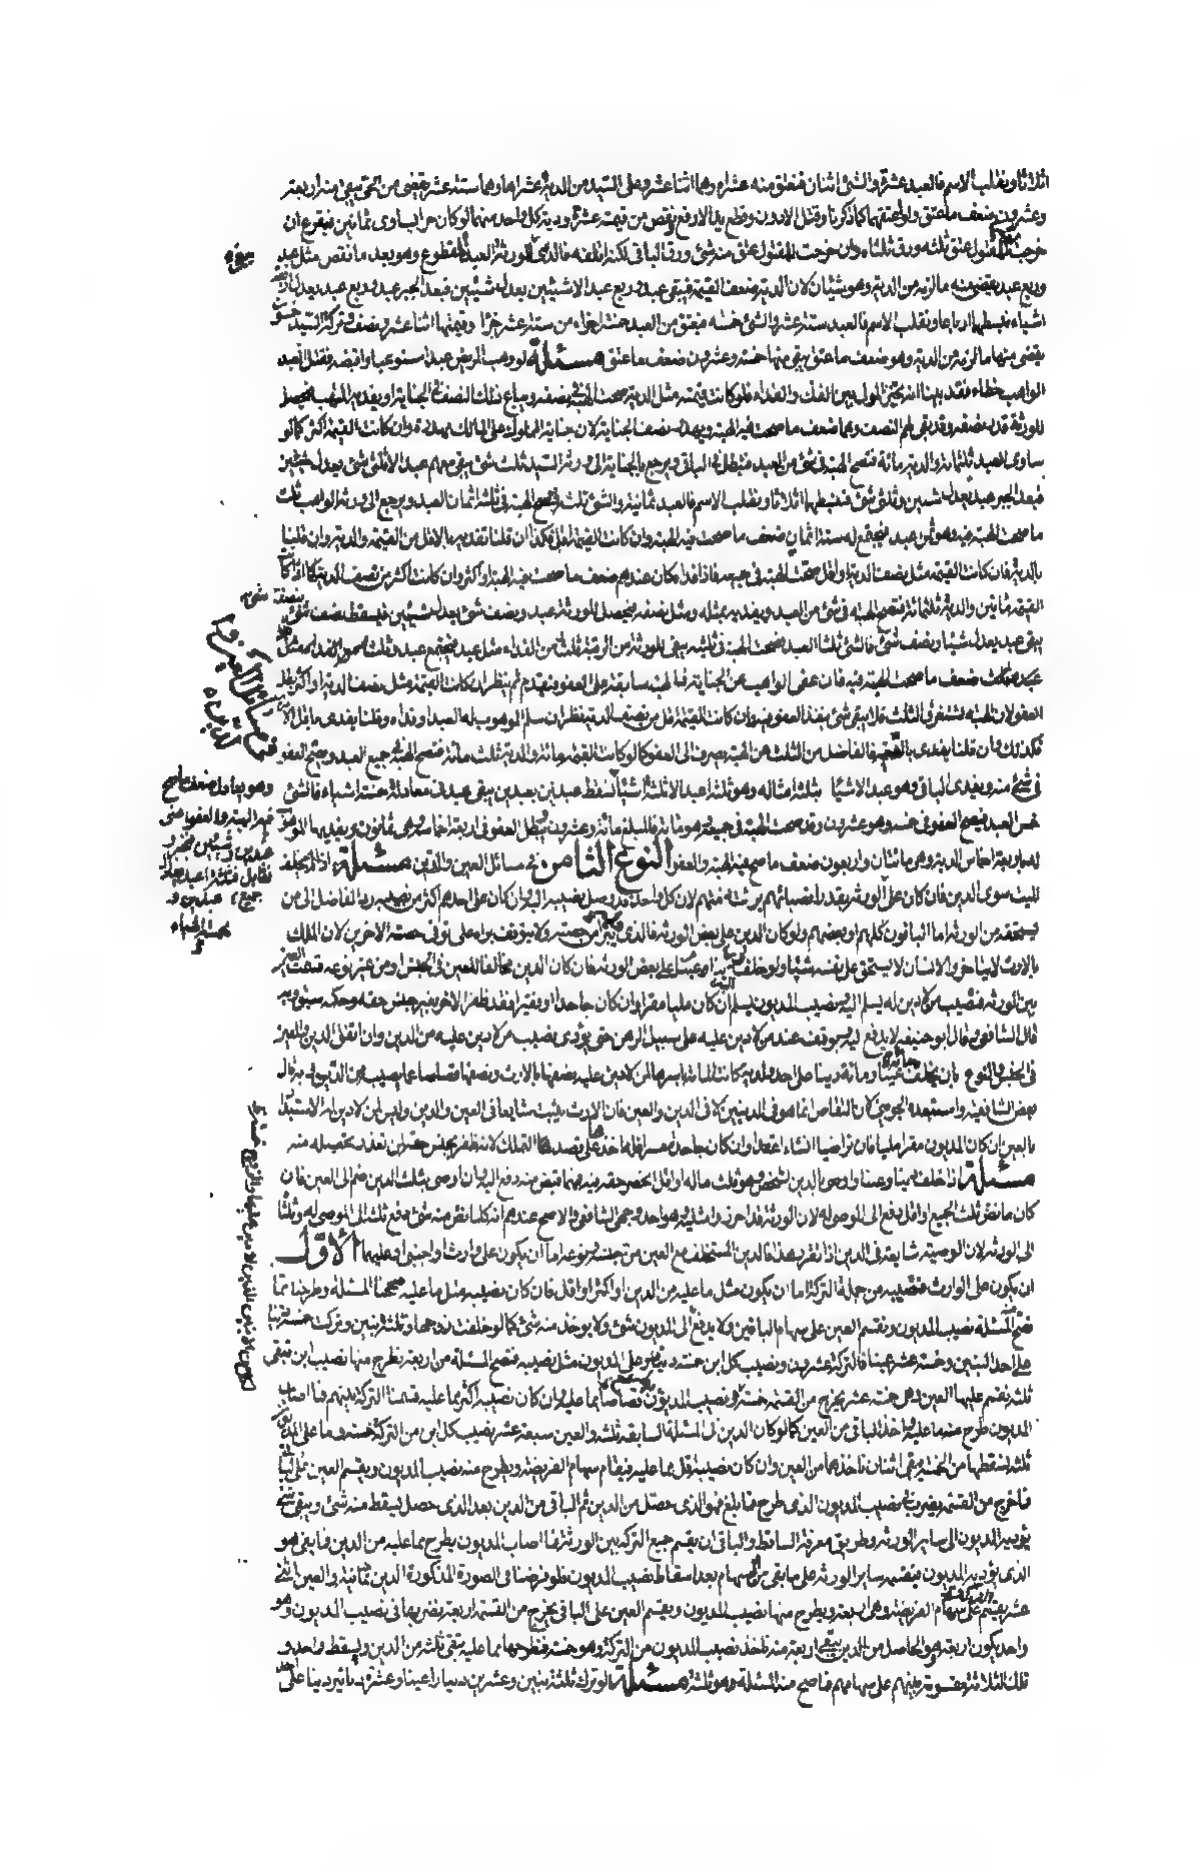 اثلاثا ونقلب الاسم فالعبد عشرة والشئ اثنان فنعتق منه عشراه وهما اثنا عشر وعلى السيد من الدية عشراها وهما ستة عشر يقضى من الحق يبقى منه اربعة
وعشرون ضعف ما عتق ولو اعتقهما كما ذكرنا وقتل الادون وقطع يد الارفع نقص من قيمته عشر ودية كل واحد منهما لو كان حرا يساوى ثمانين فيقرع ان
خرجت للمقتول عتق ثلثه ورق ثلثاه وان خرجت للمقتول عتق منه شئ ورق الباقى لكنه اتلفه فالذى للورثة العبد المقطوع وهو بعد ما نقص مثل عبد
وربع عبد يقضى منه ما لزمه من الدية وهو شيئان لان الدية ضعف القيمة فيبقى عبد وربع عبد الا شيئين يعدل شيئين فبعد الجبر عبد وربع عبد يعدل اربعة
اشياء فابسطها ارباعا ونقلب الاسم فالعبد ستة عشر والشئ خمسة فيعتق من العبد خمسة اجزاء من ستة عشر جزءا وقيمتها اثنا عشر ونصف وتركة السيد
يقضى منها ما لزمه من الدية وهو ضعف ما عتق يبقى منها خمسة وعشرون ضعف ما عتق مسئلة لو وهب المريض عبدا مستوعبا واقبضه فقتل العبد
الواهب خطاء فقد بينا انه يتخير المولى بين الفك والفداء فلو كانت قيمته مثل الدية صحت الهبة فى نصفه ويباع ذلك النصف فى الجناية او يفديه المتهب فيحصل
للورثة قدر نصفه وقد بقى لهم النصف وهما ضعف ما صحت فيه الهبة ويهدر نصف الجناية لان جناية المملوك على المالك مهدرة وان كانت القيمة اكثر كما لو
ساوى العبد ثلثمائة والدية مائة فتصح الهبة فى شئ من العبد وتبطل فى الباقى ويرجع بالجناية الى ورثة السيد ثلث شئ يبقى معهم عبد الا ثلثى شئ يعدل شيئين
فبعد الجبر عبد يعدل شيئين وثلثى شئ فنبسطها اثلاثا ونقلب الاسم فالعبد ثمانية والشئ ثلث فتصح الهبة فى ثلثة اثمان العبد ويرجع الى ورثة الواهب ثلث
ما صحت الهبة فيه وهو ثمن عبد فيجتمع له ستة اثمان ضعف ما صحت فيه الهبة وان كانت القيمة اقل فكذا ان قلنا تفديه بالاقل من القيمة والدية وان قلنا
بالدية فان كانت القيمة مثل نصف الدية او اقل صحت الهبة فى جميعه فاذا فداه كان عندهم ضعف ما صحت فيه الهبة او اكثر وان كانت اكثر من نصف الدية كما اذا كانت
القيمة مائتين والدية ثلثمائة فتصح الهبة فى شئ من العبد ويفديه بمثله ومثل نصفه فيحصل للورثة عبد ونصف شئ يعدل شيئين فيسقط نصف شئ
يبقى عبد يعدل شيئا ونصف شئ فالشئ ثلثا العبد فصحت الهبة فى ثلثيه يبقى للورثة من الرقبة ثلث ومن الفداء مثل عبد فيجتمع عبد وثلث
عبد وثلث ضعف ما صحت الهبة فيه فان عفى الواهب عن الجناية فالهبة سابقة على العفو فتقدم ثم ينظر ان كانت القيمة مثل نصف الدية او اكثر بطل
العفو لان الهبة تستغرق الثلث فلا يبقى شئ ينفذ العفو فيه وان كانت القيمة اقل من نصف الدية ينظر ان سلم الموهوب له العبد او فداه وقلنا يفدى باقل الامرين
فكذلك وان قلنا يفدى بالدية فالفاضل من الثلث عن الهبة يصرف الى العفو كما لو كانت القيمة مائة والدية ثلث مائة فتصح الهبة فى جميع العبد ويصح العفو
فى شئ منه ويفدى الباقى وهو عبد الا شيئا بثلثة امثاله وهو ثلثة اعبد الا ثلثة اشياء
خمس العبد فيصح العفو فى خمسه وهو عشرون وقد صحت الهبة فى جميعه وهو مائة فالمبلغ مائة وعشرون ويبطل العفو فى اربعة اخماسه وهى ثمانون ويفديها الموهوب
له باربعة اخماس الدية وهو مائتان واربعون ضعف ما صح فيه الهبة والعفو النوع الثامن فى مسائل العين والدين مسئلة اذا لم يخلف
الميت سوى الدين فان كان على الورثة بقدر انصبائهم برئت ذمتهم لان كل واحد قد وصل نصيبه اليه وان كان على احدهم اكثر من نصيبه رد الفاضل الى من
يستحقه من الورثة اما الباقون كلهم او بعضهم ولو كان الدين على بعض الورثة فالذى يبرأ من حصته ولا يتوقف براه على توفى حصته الاخرين لان الملك
بالارث لا يتاخر والانسان لا يستحق على نفسه شيئا ولو خلف عينا ودينا على بعض الورثة فان كان الدين مخالفا للعين فى الجنس او من غير نوعه قسمت العين
بين الورثة فنصيب من لا دين له يسلم اليه ونصيب المديون يسلم ان كان مليا مقرا وان كان جاحدا او فقيرا فقد ظفر الاخر بغير جنس حقه وحكمه سبق وبه
قال الشافعى وقال ابو حنيفة لا يدفع اليه ويوقف عند من لا دين عليه على سبيل الرهن حتى يؤدى نصيب من لا دين عليه من الدين وان اتفق الدين والعين
فى الجنس والنوع بان يخلف عينا ومائة دينا على احد ولديه كانت المائة باسرها لمن لا دين عليه نصفها بالارث ونصفها قصاصا عما يصيب من الدين وبه قال
بعض الشافعية واستبعده الجوينى لان التقاص انما هو فى الدينين لا فى الدين والعين فان الارث يثبت مشايعا فى العين والدين وليس لمن لا دين له الاستبداد
بالعين ان كان المديون مقرا مليا فان تراضيا انشاء عقدا وان كان جاحدا معسرا فله اخذها على قصد التملك لانه ظفر بجنس حقه لمن تعذر تحصيله منه
مسئلة اذا خلف دينا وعينا واوصى بالدين لشخص وهو ثلث ماله او اقل انحصر حقه فيه فمهما قبض منه دفع اليه وان اوصى بثلث الدين ضم الى العين فان
كان ما نض ثلث الجميع او اقل دفع الى الموصى له لان الورثة قد احرزوا مثليه وهو احد وجهى الشافعى والاصح عندهم انه كلما نض منه شئ دفع ثلثه الى الموصى له وثلثاه
الى الورثة لان الوصية شايعة فى الدين اذا تقرر هذا فالدين المستخلف مع العين من جنسه ونوعه اما ان يكون على وارث او اجنبى او عليهما الاول
ان يكون على الوارث فنصيبه من جملة التركة اما ان يكون مثل ما عليه من الدين او اكثر او اقل فان كان نصيبه مثل ما عليه صححنا المسئلة وطرحنا مما
تصح المسئلة نصيب المديون ونقسم العين على سهام الباقين ولا يدفع الى المديون شئ ولا يؤخذ منه شئ كما لو خلفت زوجها وثلثة بنين وتركت خمسة دينا
على احد البنين وخمسة عشر عينا فالتركة عشرون ونصيب كل ابن خمسة وعلى المديون مثل نصيبه فتصح المسئلة من اربعة نطرح منها نصيب ابن تبقى
ثلثة نقسم عليها العين وهى خمسة عشر يخرج من القسمة خمسة ونصيب المديون قصاصا بما عليه وان كان نصيبه اكثر مما عليه قسمنا التركة بينهم فما اصاب
المديون طرح منه ما عليه واخذ الباقى من العين كما لو كان الدين فى المسئلة السابقة ثلثة والعين سبعة عشر نصيب كل ابن من التركة خمسة وما على المديون
ثلثة نسقطها من الخمسة يبقى اثنان ياخذهما من العين وان كان نصيبه اقل مما عليه فيقام سهام الفريضة ويطرح منه نصيب المديون ويقسم العين على الباقى
فما خرج من القسمة يضرب فى نصيب المديون الذى طرح فما بلغ فهو الذى حصل من الدين ثم الباقى من الدين بعد الذى حصل يسقط منه شئ ويبقى شئ
يؤديه المديون الى ساير الورثة وطريق معرفة الساقط والباقى ان يقسم جميع التركة بين الورثة فما اصاب المديون يطرح مما عليه من الدين فما بقى هو
الذى يؤديه المديون فيقتسمه ساير الورثة على ما بقى من السهام بعد اسقاط نصيب المديون فلو فرضنا فى الصورة المذكورة الدين ثمانية والعين اثنى
عشر يقسم على سهام الفريضة وهى اربعة ويطرح منها نصيب المديون ويقسم العين على الباقى يخرج من القسمة اربعة نضربها فى نصيب المديون وهو
واحد يكون اربعة هو الحاصل من الدين يبقى اربعة منه ناخذ نصيب المديون من التركة وهو خمسة فنطرحها مما عليه تبقى ثلثة من الدين ويسقط واحد و
تلك الثلاثة مقسومة بينهم على سهامهم فما صح منه المسئلة وهو ثلثة مسئلة لو ترك ثلثة بنين وعشرين دينارا عينا وعشرة دنانير دينا على احد
فى مسائل العين والدين
وهو يعادل ضعف ما صح
فيه الهبة والعفو اعنى
عبدين وشيئين فيجبر و
نقابل فثلثة اعبد